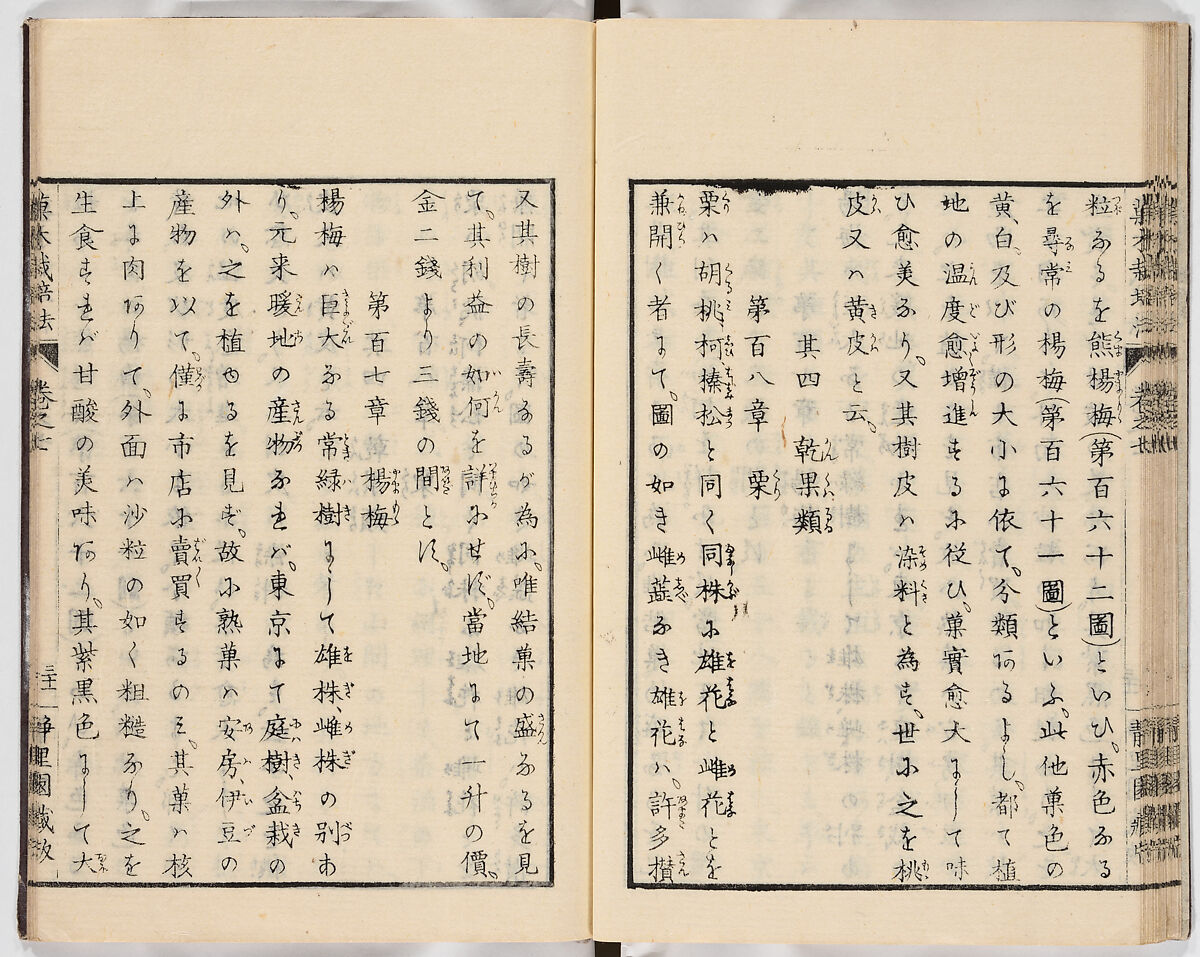 粒なるを熊楊梅(第百六十二圖)といひ、赤色なる
を尋常の楊梅(第百六十一圖)といふ、此他菓色の
黄、白、及び形の大小に依て、分類あるよし、都て植
地の温度愈増進するに從ひ、菓實愈大にして味
ひ愈美なり、又其樹皮ハ染料と為す、世に之を桃
皮又ハ黄皮と云、
其四 乾果類
第百八章 栗
栗ハ胡桃、柯榛松と同く同株に雄花と雌花とを
兼開く者にて、圖の如き雌蕋なき雄花ハ、許多攅
又其樹の長壽なるが為に、唯結菓の盛なるを見
て、其利益の如何を詳にせず、當地にて一升の價、
金二錢より三錢の間とす、
第百七章 楊梅
楊梅ハ巨大なる常緑樹にして雄株、雌株の別あ
り、元来暖地の産物なれバ、東京にて庭樹、盆栽の
外ハ、之を植ゆるを見ず、故に熟菓ハ安房、伊豆の
産物を以て、僅に市店に賣買するのミ、其菓ハ核
上に肉ありて、外面ハ沙粒の如く粗糙なり、之を
生食すれバ甘酸の美味あり、其紫黒色にして大
菓木栽培法 卷之七 三十一 静里園藏版